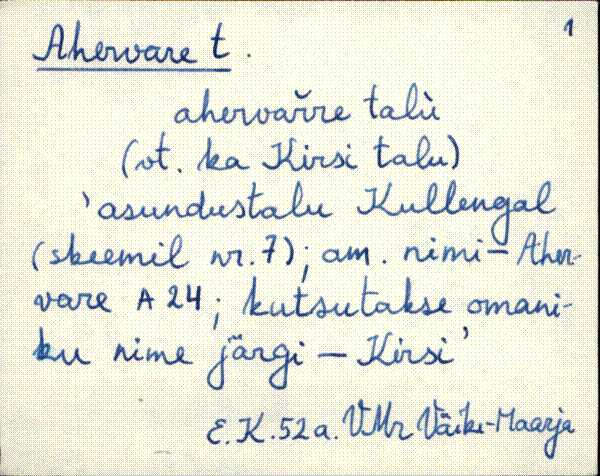 1
Ahervare t.
ahervařre talù
(vt. ka Kirsi talu)
'asundustalu Kullengal
(skeemil nr. 7); am. nimi – Aher-
vare A 24; kutsutakse omani-
ku nime järgi – Kirsi'
E. K. 52 a. VMr Väike-Maarja